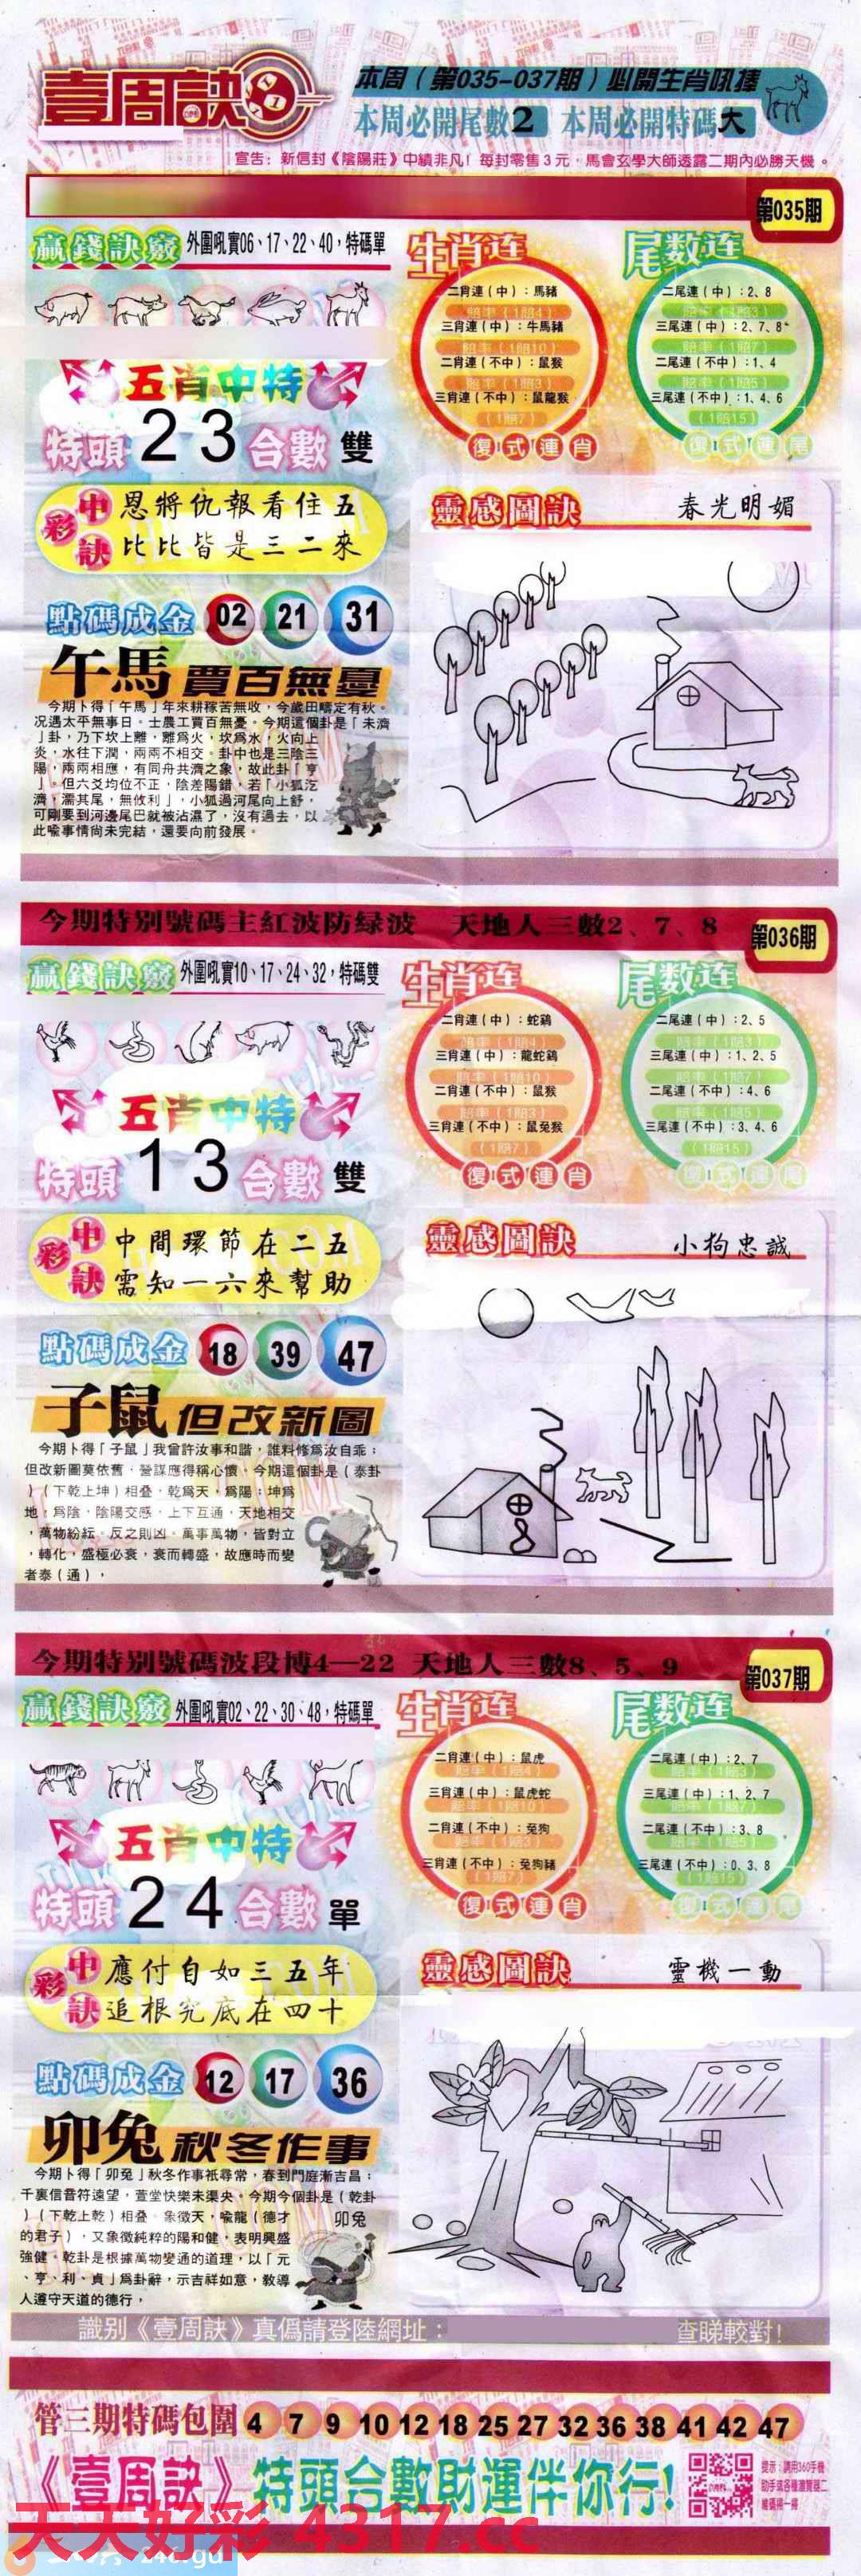 壹周訣
本周（第035-037期）必開生肖吼捶
本周必開尾數2 本周必開特碼大
宣告：新信封《陰陽莊》中績非凡！每封零售3元，馬會玄學大師透露二期內必勝天機。
第035期
贏錢訣竅 外圍吼實06、17、22、40，特碼單
五肖中特
特頭 2 3 合數 雙
生肖连
二肖連（中）：馬豬
賠率（1賠4）
三肖連（中）：牛馬豬
賠率（1賠10）
二肖連（不中）：鼠猴
賠率（1賠3）
三肖連（不中）：鼠龍猴
（1賠7）
復式連肖
尾数连
二尾連（中）：2、8
賠率（1賠3）
三尾連（中）：2、7、8
賠率（1賠7）
二尾連（不中）：1、4
賠率（1賠5）
三尾連（不中）：1、4、6
（1賠15）
復式連尾
中彩訣
恩將仇報看住五
比比皆是三二來
靈感圖訣 春光明媚
點碼成金 02 21 31
午馬 賈百無憂
今期卜得「午馬」年來耕稼苦無收，今歲田疇定有秋。
況遇太平無事日。士農工賈百無憂。今期這個卦是「未濟
」卦，乃下坎上離，離爲火，坎爲水，火向上
炎，水往下潤，兩兩不相交。卦中也是三陰三
陽，兩兩相應，有同舟共濟之象，故此卦「亨
」。但六爻均位不正，陰差陽錯，若「小狐汔
濟，濡其尾，無攸利」，小狐過河尾向上舒，
可剛要到河邊尾巴就被沾濕了，沒有過去，以
此喻事情尚未完結，還要向前發展。
今期特别號碼主紅波防緑波 天地人三數2、7、8
第036期
贏錢訣竅 外圍吼實10、17、24、32，特碼雙
五肖中特
特頭 1 3 合數 雙
生肖连
二肖連（中）：蛇鷄
賠率（1賠4）
三肖連（中）：龍蛇鷄
賠率（1賠10）
二肖連（不中）：鼠猴
賠率（1賠3）
三肖連（不中）：鼠兔猴
（1賠7）
復式連肖
尾数连
二尾連（中）：2、5
賠率（1賠3）
三尾連（中）：1、2、5
賠率（1賠7）
二尾連（不中）：4、6
賠率（1賠5）
三尾連（不中）：3、4、6
（1賠15）
復式連尾
中彩訣
中間環節在二五
需知一六來幫助
靈感圖訣 小狗忠誠
點碼成金 18 39 47
子鼠 但改新圖
今期卜得「子鼠」我曾許汝事和諧，誰料修爲汝自乖；
但改新圖莫依舊，營謀應得稱心懷。今期這個卦是（泰卦
）（下乾上坤）相叠，乾爲天，爲陽；坤爲
地，爲陰，陰陽交感，上下互通，天地相交
，萬物紛紜。反之則凶。萬事萬物，皆對立
，轉化，盛極必衰，衰而轉盛，故應時而變
者泰（通），
今期特别號碼波段博4—22 天地人三數8、5、9
第037期
贏錢訣竅 外圍吼實02、22、30、48，特碼單
五肖中特
特頭 2 4 合數 單
生肖连
二肖連（中）：鼠虎
賠率（1賠4）
三肖連（中）：鼠虎蛇
賠率（1賠10）
二肖連（不中）：兔狗
賠率（1賠3）
三肖連（不中）：兔狗豬
（1賠7）
復式連肖
尾数连
二尾連（中）：2、7
賠率（1賠3）
三尾連（中）：1、2、7
賠率（1賠7）
二尾連（不中）：3、8
賠率（1賠5）
三尾連（不中）：0、3、8
（1賠15）
復式連尾
中彩訣
應付自如三五年
追根究底在四十
靈感圖訣 靈機一動
點碼成金 12 17 36
卯兔 秋冬作事
今期卜得「卯兔」秋冬作事祇尋常，春到門庭漸吉昌；
千裏信音符遠望，萱堂快樂未渠央。今期今個卦是（乾卦
）（下乾上乾）相叠。象徵天，喻龍（德才
的君子），又象徵純粹的陽和健，表明興盛
強健。乾卦是根據萬物變通的道理，以「元
、亨、利、貞」爲卦辭，示吉祥如意，教導
人遵守天道的德行，
卯兔
識别《壹周訣》真僞請登陸網址： 查睇較對！
管三期特碼包圍 4 7 9 10 12 18 25 27 32 36 38 41 42 47
《壹周訣》特頭合數財運伴你行！
提示：請用360手機
助手或各種瀏覽器二
維碼掃一掃
天天好彩 4317.cc